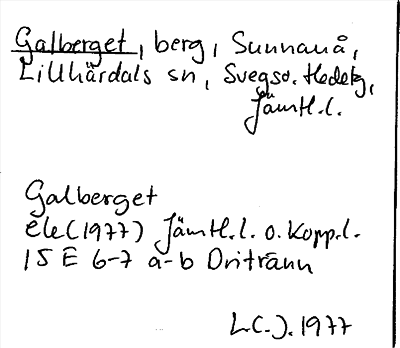 Galberget, berg, Sunnanå,
Lillhärdals sn, Svegso. Hedetg,
Jämtl.l.
Galberget
ele(1977) Jämtl.l. o. Kopp.l.
15 E 6-7 a-b Oritränn
L.C.J. 1977